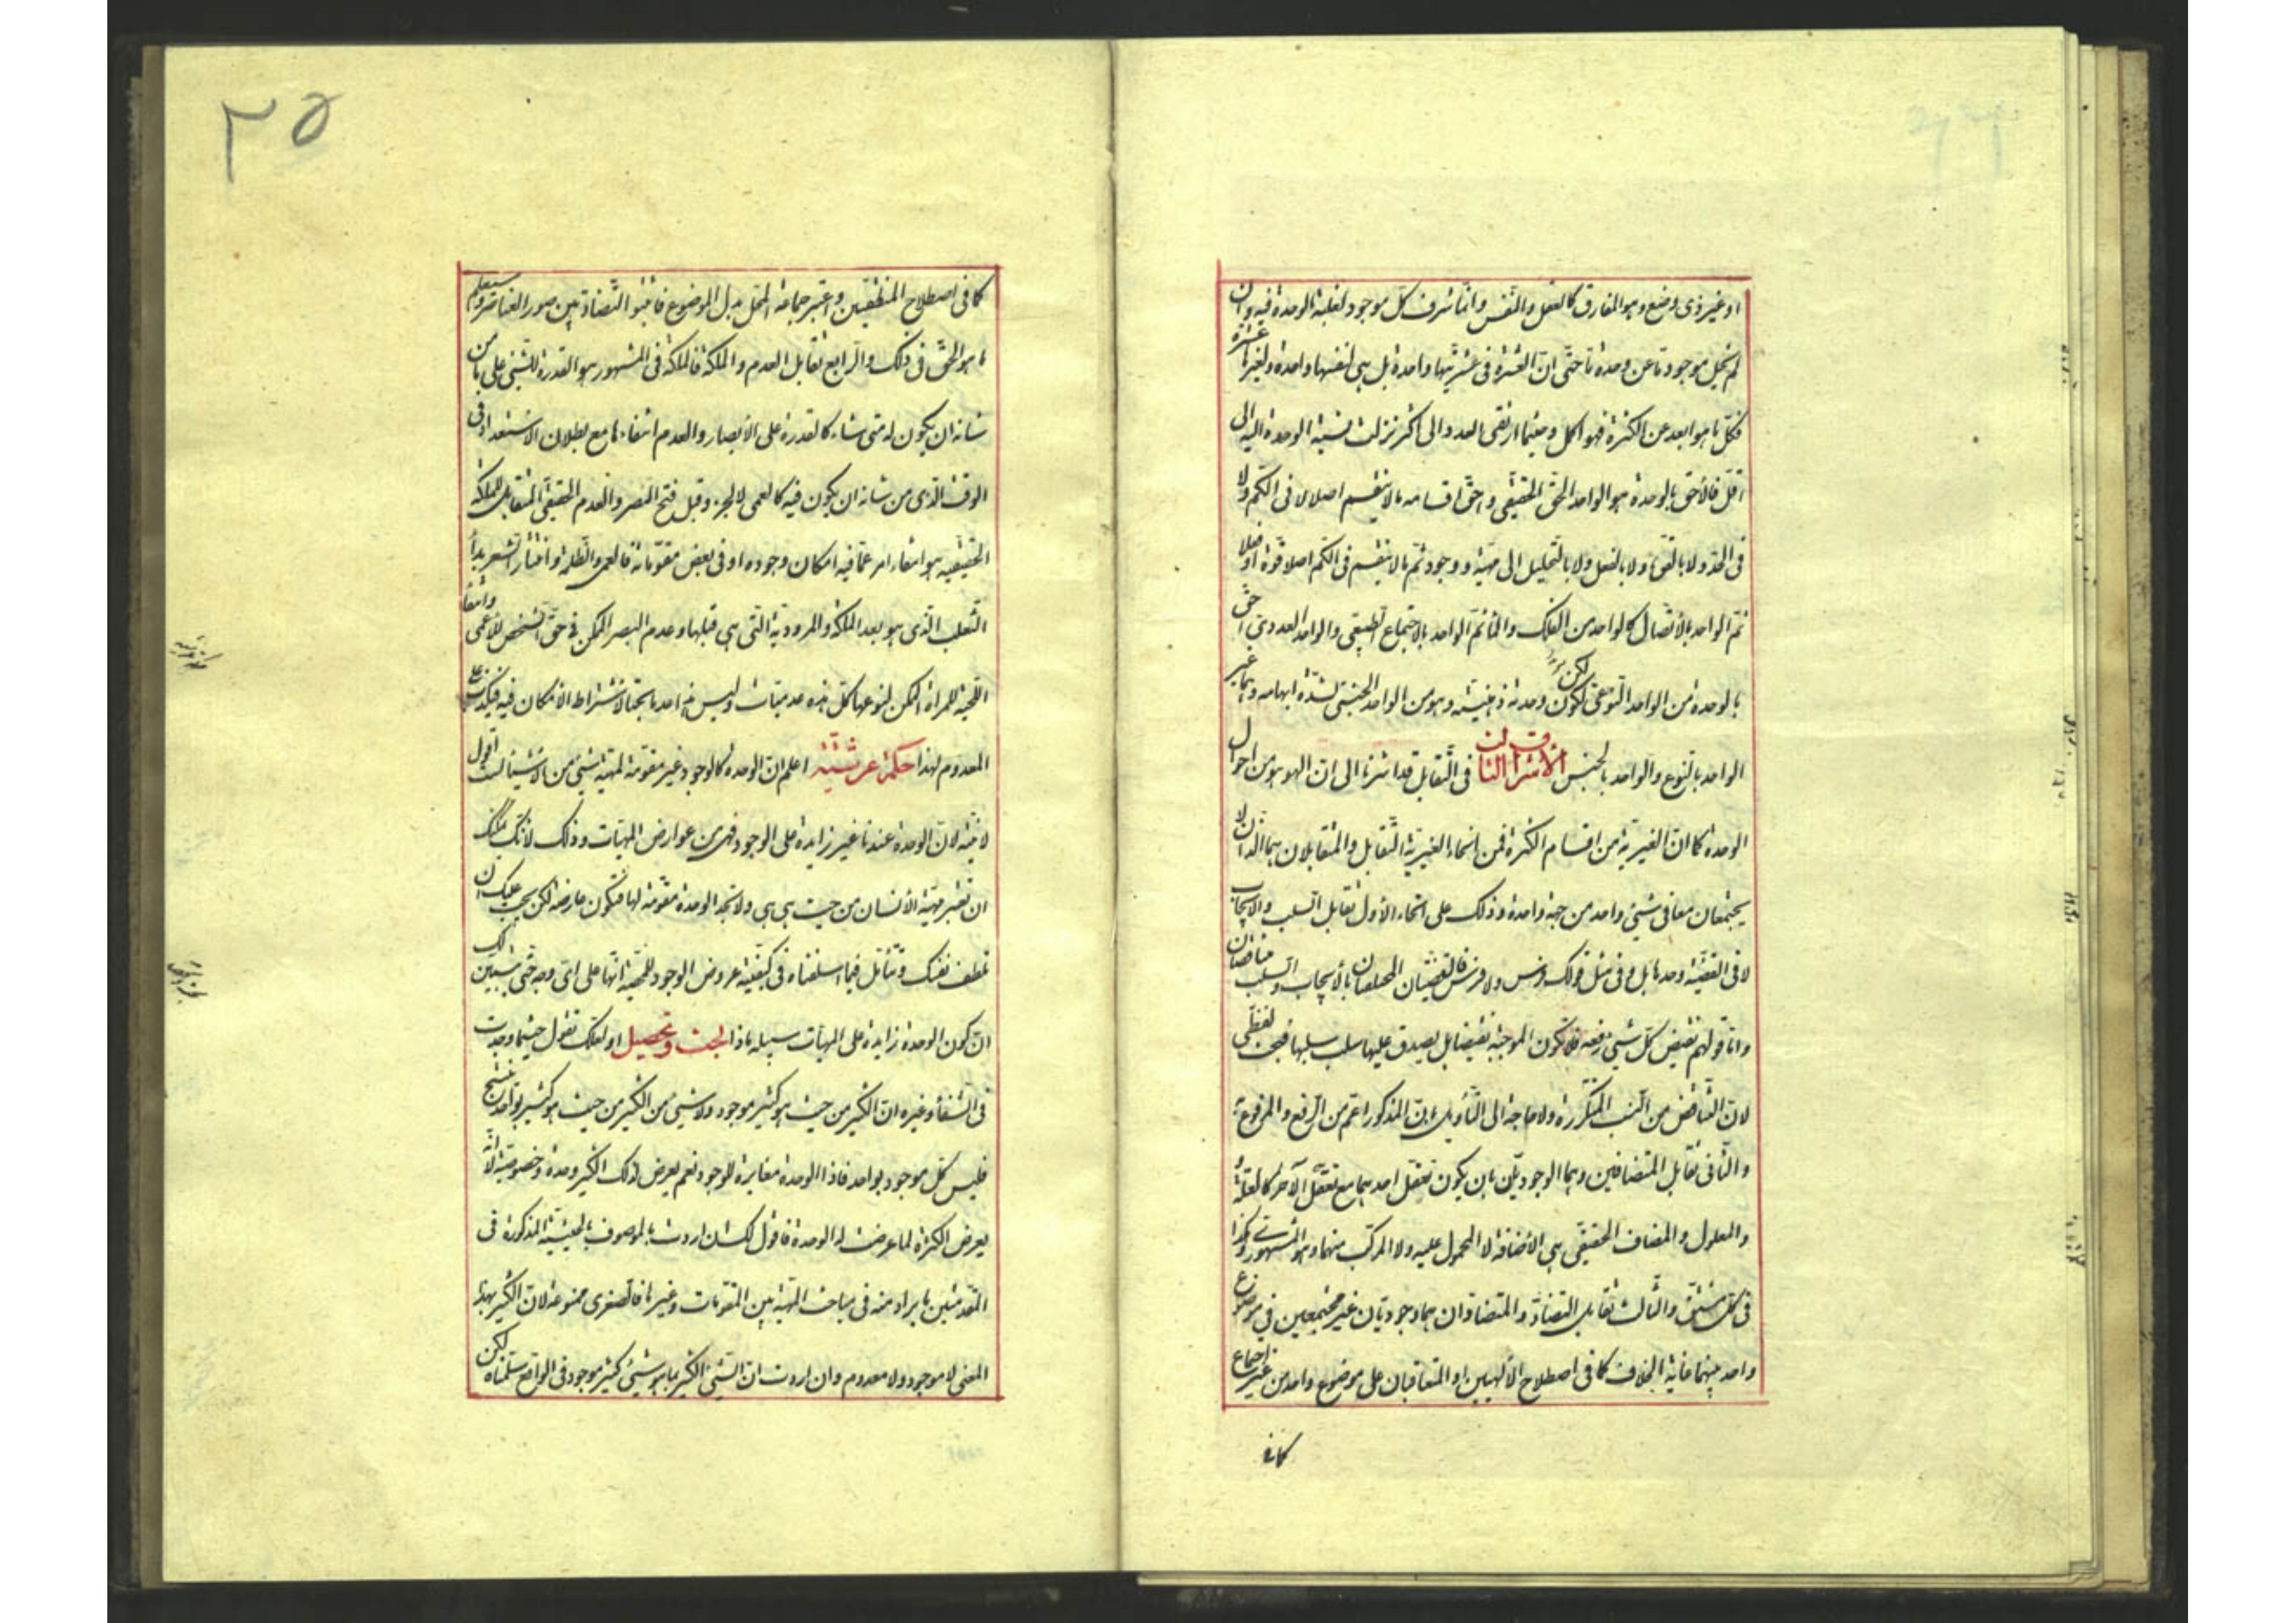 او غير ذى وضع وهو المفارق كالعقل والنفس وانما شرف كل موجود لغلبة الوحدة فيه وان
لم يخل موجود ما عن وحدة ما حتى ان العشرة فى عشريتها واحدة بل هى لنفسها واحدة ولغيرها عشرة
فكل ما هو ابعد عن الكثرة فهو اكمل وحيثما ارتقى العدد الى اكثر نزلت نسبة الوحدة اليه الى
اقل فالأحق بالوحدة هو الواحد الحق الحقيقى واحق اقسامه ما لا ينقسم اصلا لا فى الكم ولا
فى الحد ولا بالقوة ولا بالفعل ولا بالتحليل الى مهية ووجود ثم ما لا ينقسم فى الكم اصلا قوة او فعلا
ثم الواحد بالأتصال كالواحد من الفلك والماء ثم الواحد بالاجتماع الطبيعى والواحد العددى احق
بالوحدة من الواحد النوعى لكون وحدته ذهنية وهو من الواحد الجنسى لشدة ابهامه وهما غير
الواحد بالنوع والواحد بالجنس الأشراق الثالث فى التقابل قد اشرنا الى ان الهوهو من احوال
الوحدة كما ان الغيرية من اقسام الكثرة فمن انحاء الغيرية التقابل والمتقابلان هما اللذان لا
يجتمعان معا فى شيئ واحد من جهة واحدة وذلك على انحاء الأول تقابل السلب والايجاب
لا فى القضية وحدها بل وفى مثل قولك فرس ولا فرس فالقضيتان المختلفتان بالأيجاب والسلب متناقضتان
واما قولهم نقيض كل شيئ رفعه فلا تكون الموجبة نقيضا بل يصدق عليها سلب سلبها فبحث لفظى
لان التناقض من النسب المتكررة ولا حاجة الى التأويل بان المذكور اعم من الرفع والمرفوعية
والثانى تقابل المتضايفين وهما الوجوديان بان يكون تعقل احدهما مع تعقل الآخر كالعلة
والمعلول والمضاف الحقيقى هى الأضافة لا المحمول عليه ولا المركب منهما وهو المشهورى وكذا
فى كل مشتق والثالث تقابل التضاد والمتضادان هما وجوديان غير مجتمعين فى موضوع
واحد بينهما غاية الخلاف كما فى اصطلاح الألهيين او المتعاقبان على موضوع واحد من غير اجتماع
كما فى
٣٥
كما فى اصطلاح المنطقيين واعتبر جماعة المحل بدل الموضوع فاثبتوا التضاد بين صور العناصر وستعلم
ما هو الحق فى ذلك والرابع تقابل العدم والملكة فالملكة فى المشهور هو القدرة للشيئ على ما من
شانه ان يكون له متى شاء كالقدرة على الأبصار والعدم انتفاءها مع بطلان الاستعداد فى
الوقت الذى من شانه ان يكون فيه كالعمى لا للجرو قبل فتح البصر والعدم الحقيقى المتقابل للملكة
الحقيقية هو انتفاء امر عما فيه امكان وجوده او فى بعض مقوماته فالعمى والظلمة وانتثار الشعر بداء
الثعلب الذى هو بعد الملكة والمرودية التى هى قبلها وعدم البصر الممكن فى حق الشخص للأعمى وانتفاء
اللحية للمراة الممكن لنوعها كل هذه عدميات وليس احدها بحتا لاشتراط الأمكان فيه فليكن
المعدوم لهذا حكمة عرشية اعلم ان الوحدة كالوجود غير مقومة لمهية شيئ من الاشياء لست اقول
لانيته لان الوحدة عندنا غير زايدة على الوجود فهى من عوارض المهيات وذلك لأنك يمكنك
ان تعتبر مهية الأنسان من حيث هى هى ولا تجد الوحدة مقومة لها فتكون عارضة لكن يجب عليك ان
تلطف نفسك وتتأمل فيما اسلفناه فى كيفية عروض الوجود للمهية انها على اى وجه حتى يتبين لك
ان كون الوحدة زايدة على المهيات سبيله ماذا بحث وتحصيل او لعلك تقول حيثما وجدت
فى الشفاء وغيره ان الكثير من حيث هو كثير موجود ولا شيئ من الكثير من حيث هو كثير بواحد ينتج
فليس كل موجود بواحد فاذا الوحدة مغايرة للوجود نعم يعرض لذلك الكثير وحدة وخصوصية لا انه
يعرض الكثرة لما عرضت له الوحدة فاقول لك ان اردت بالموصوف بالحيثية المذكورة فى
المقدمتين ما يراد منه فى مباحث المهية بين المقومات وغيرها فالصغرى ممنوعة لان الكثير بهذا
المعنى لا موجود ولا معدوم وان اردت ان الشيئ الكثير بما هو شيئ كثير موجود فى الواقع سلمناه لكن